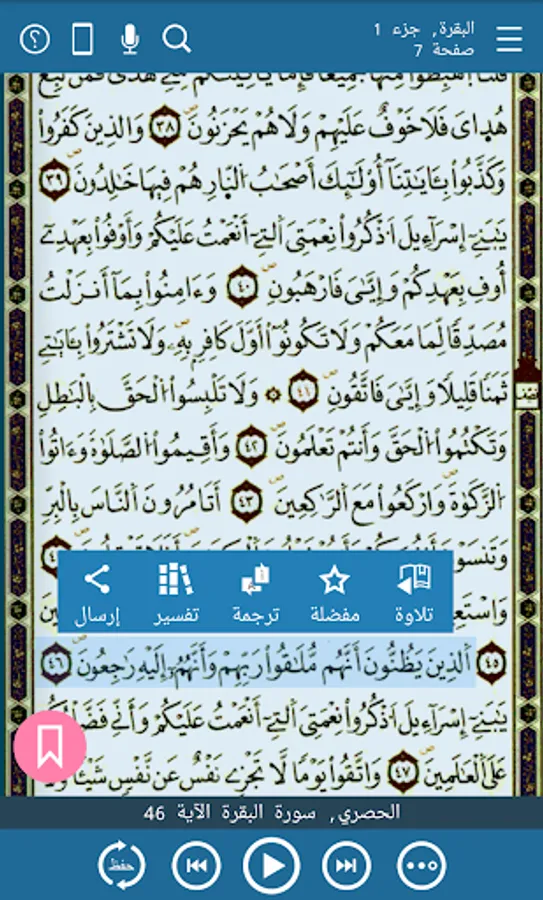 البقرة, جزء 1
صفحة 7
هُدَايَ فَلَا خَوْفٌ عَلَيْهِمْ وَلَا هُمْ يَحْزَنُونَ ٣٨ وَالذِينَ كَفَرُواْ
وَكَذَّبُواْ بِـَٔايَٰتِنَآ أُوْلَٰٓئِكَ أَصْحَٰبُ النّ۪ارِ هُمْ فِيهَا خَٰلِدُونَ ٣٩
يَٰبَنِےٓ إِسْرَآءِيلَ اَذْكُرُواْ نِعْمَتِيَ اَلتِےٓ أَنْعَمْتُ عَلَيْكُمْ وَأَوْفُواْ بِعَهْدِےٓ
أُوفِ بِعَهْدِكُمْ وَإِيَّٰيَ فَارْهَبُونِ ٤٠ وَءَامِنُواْ بِمَآ أَنزَلْتُ
مُصَدِّقاً لِّمَا مَعَكُمْ وَلَا تَكُونُوٓاْ أَوَّلَ كَافِرِۢ بِهِۦ وَلَا تَشْتَرُواْ بِـَٔايَٰتِے
ثَمَناً قَلِيلًا وَإِيَّٰيَ فَاتَّقُونِ ٤١ ۞ وَلَا تَلْبِسُواْ اُلْحَقَّ بِالْبَٰطِلِ
وَتَكْتُمُواْ اُلْحَقَّ وَأَنتُمْ تَعْلَمُونَ ٤٢ وَأَقِيمُواْ اُلصَّلَوٰةَ وَءَاتُواْ
اُلزَّكَوٰةَ وَارْكَعُواْ مَعَ اَلرَّٰكِعِينَ ٤٣ أَتَامُرُونَ اَلنَّاسَ بِالْبِرِّ
تلاوة
مفضلة
ترجمة
تفسير
إرسال
٤٥ اَلذِينَ يَظُنُّونَ أَنَّهُم مُّلَٰقُواْ رَبِّهِمْ وَأَنَّهُمُۥٓ إِلَيْهِ رَٰجِعُونَ ٤٦
يَٰبَنِےٓ إِسْرَآءِيلَ اَذْكُرُواْ نِعْمَتِيَ اَلتِےٓ أَنْعَمْتُ عَلَيْكُمْ وَأَنِّے فَضَّلْتُكُمْ
عَلَى اَلْعَٰلَمِينَ ٤٧ وَاتَّقُواْ يَوْماً لَّا تَجْزِے نَفْسٌ عَن نَّفْسٍ شَيْـٔاً وَلَا
الحصري, سورة البقرة الآية 46
حفظ